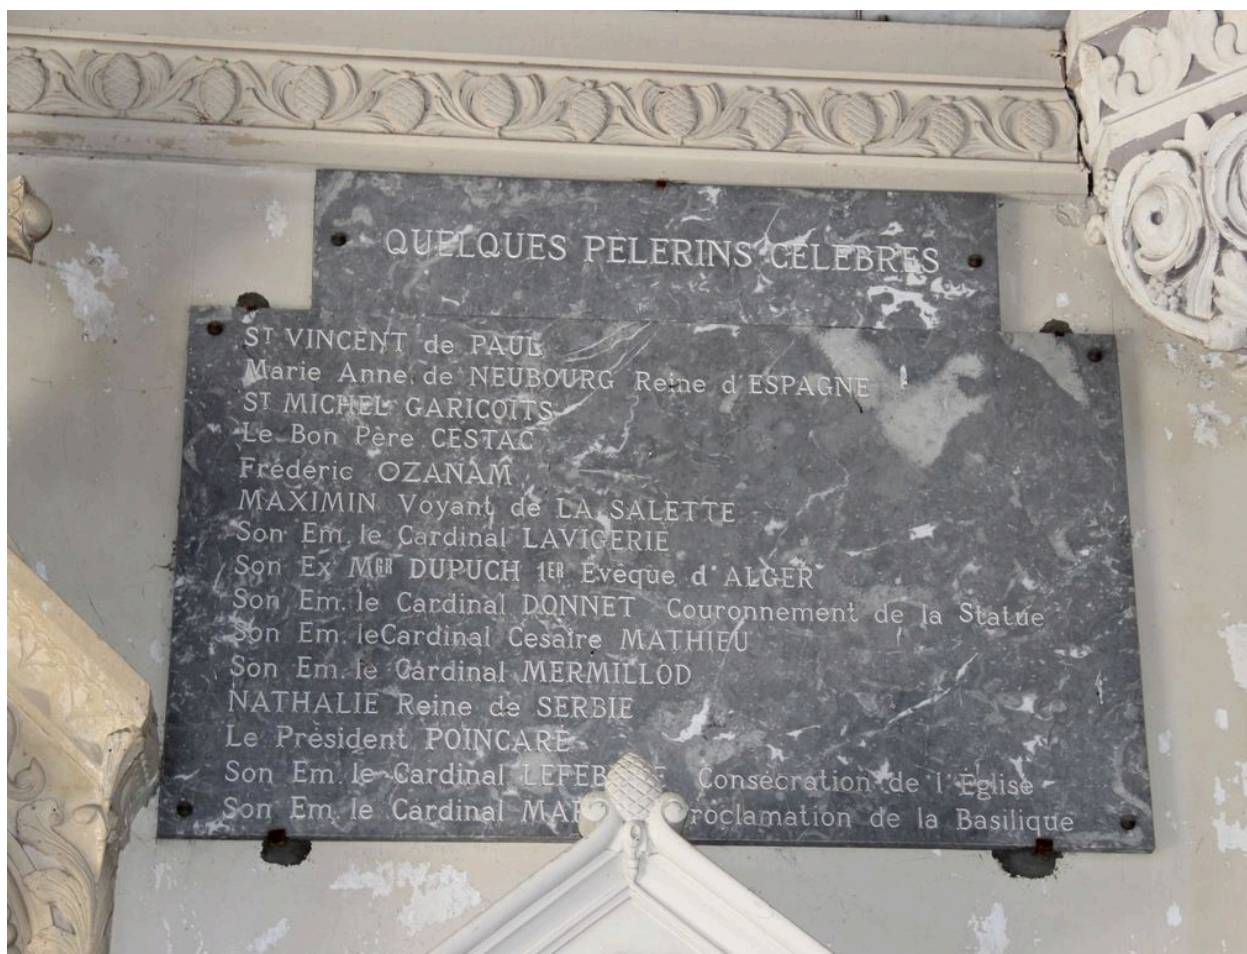 QUELQUES PÈLERINS CÉLÈBRES
ST VINCENT de PAUL
Marie Anne de NEUBOURG Reine d'ESPAGNE
ST MICHEL GARICOITS
Le Bon Père CESTAC
Frédéric OZANAM
MAXIMIN Voyant de LA SALETTE
Son Em. le Cardinal LAVIGERIE
Son Ex MGR DUPUCH 1ER Evêque d'ALGER
Son Em. le Cardinal DONNET Couronnement de la Statue
Son Em. le Cardinal Césaire MATHIEU
Son Em. le Cardinal MERMILLOD
NATHALIE Reine de SERBIE
Le Président POINCARÉ
Son Em. le Cardinal Consécration de l'Église
Son Em. le Cardinal de la Basilique